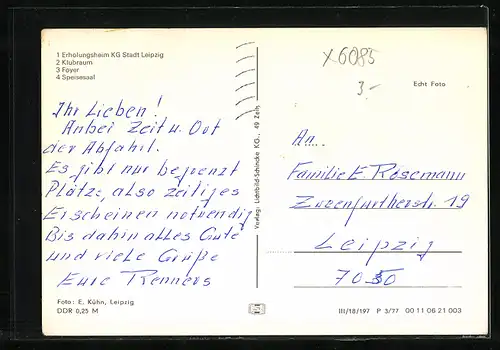 1 Erholungsheim KG Stadt Leipzig
2 Klubraum
3 Foyer
4 Speisesaal
Ihr Lieben!
Anbei Zeit u. Ort
der Abfahrt.
Es gibt nur begrenzt
Plätze, also zeitiges
Erscheinen notwendig
Bis dahin alles Gute
und viele Grüße
Eure Renners
Foto: E. Kühn, Leipzig
DDR 0,25 M
Verlag Lichtbild-Schincke KG., 49 Zeitz
X 6085
3.-
Echt Foto
An
Familie E Rösemann
19
Leipzig
7050
III/18/197 P 3/77 00 11 06 21 003